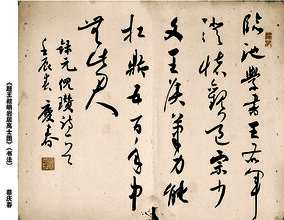 臨池學書王右軍
澄懷觀道宗少
文王侯筆力能
扛鼎五百年中
無此人
錄元倪瓚詩一首
壬辰春慶春
《题王叔明岩居高士图》（书法）
蔡庆春